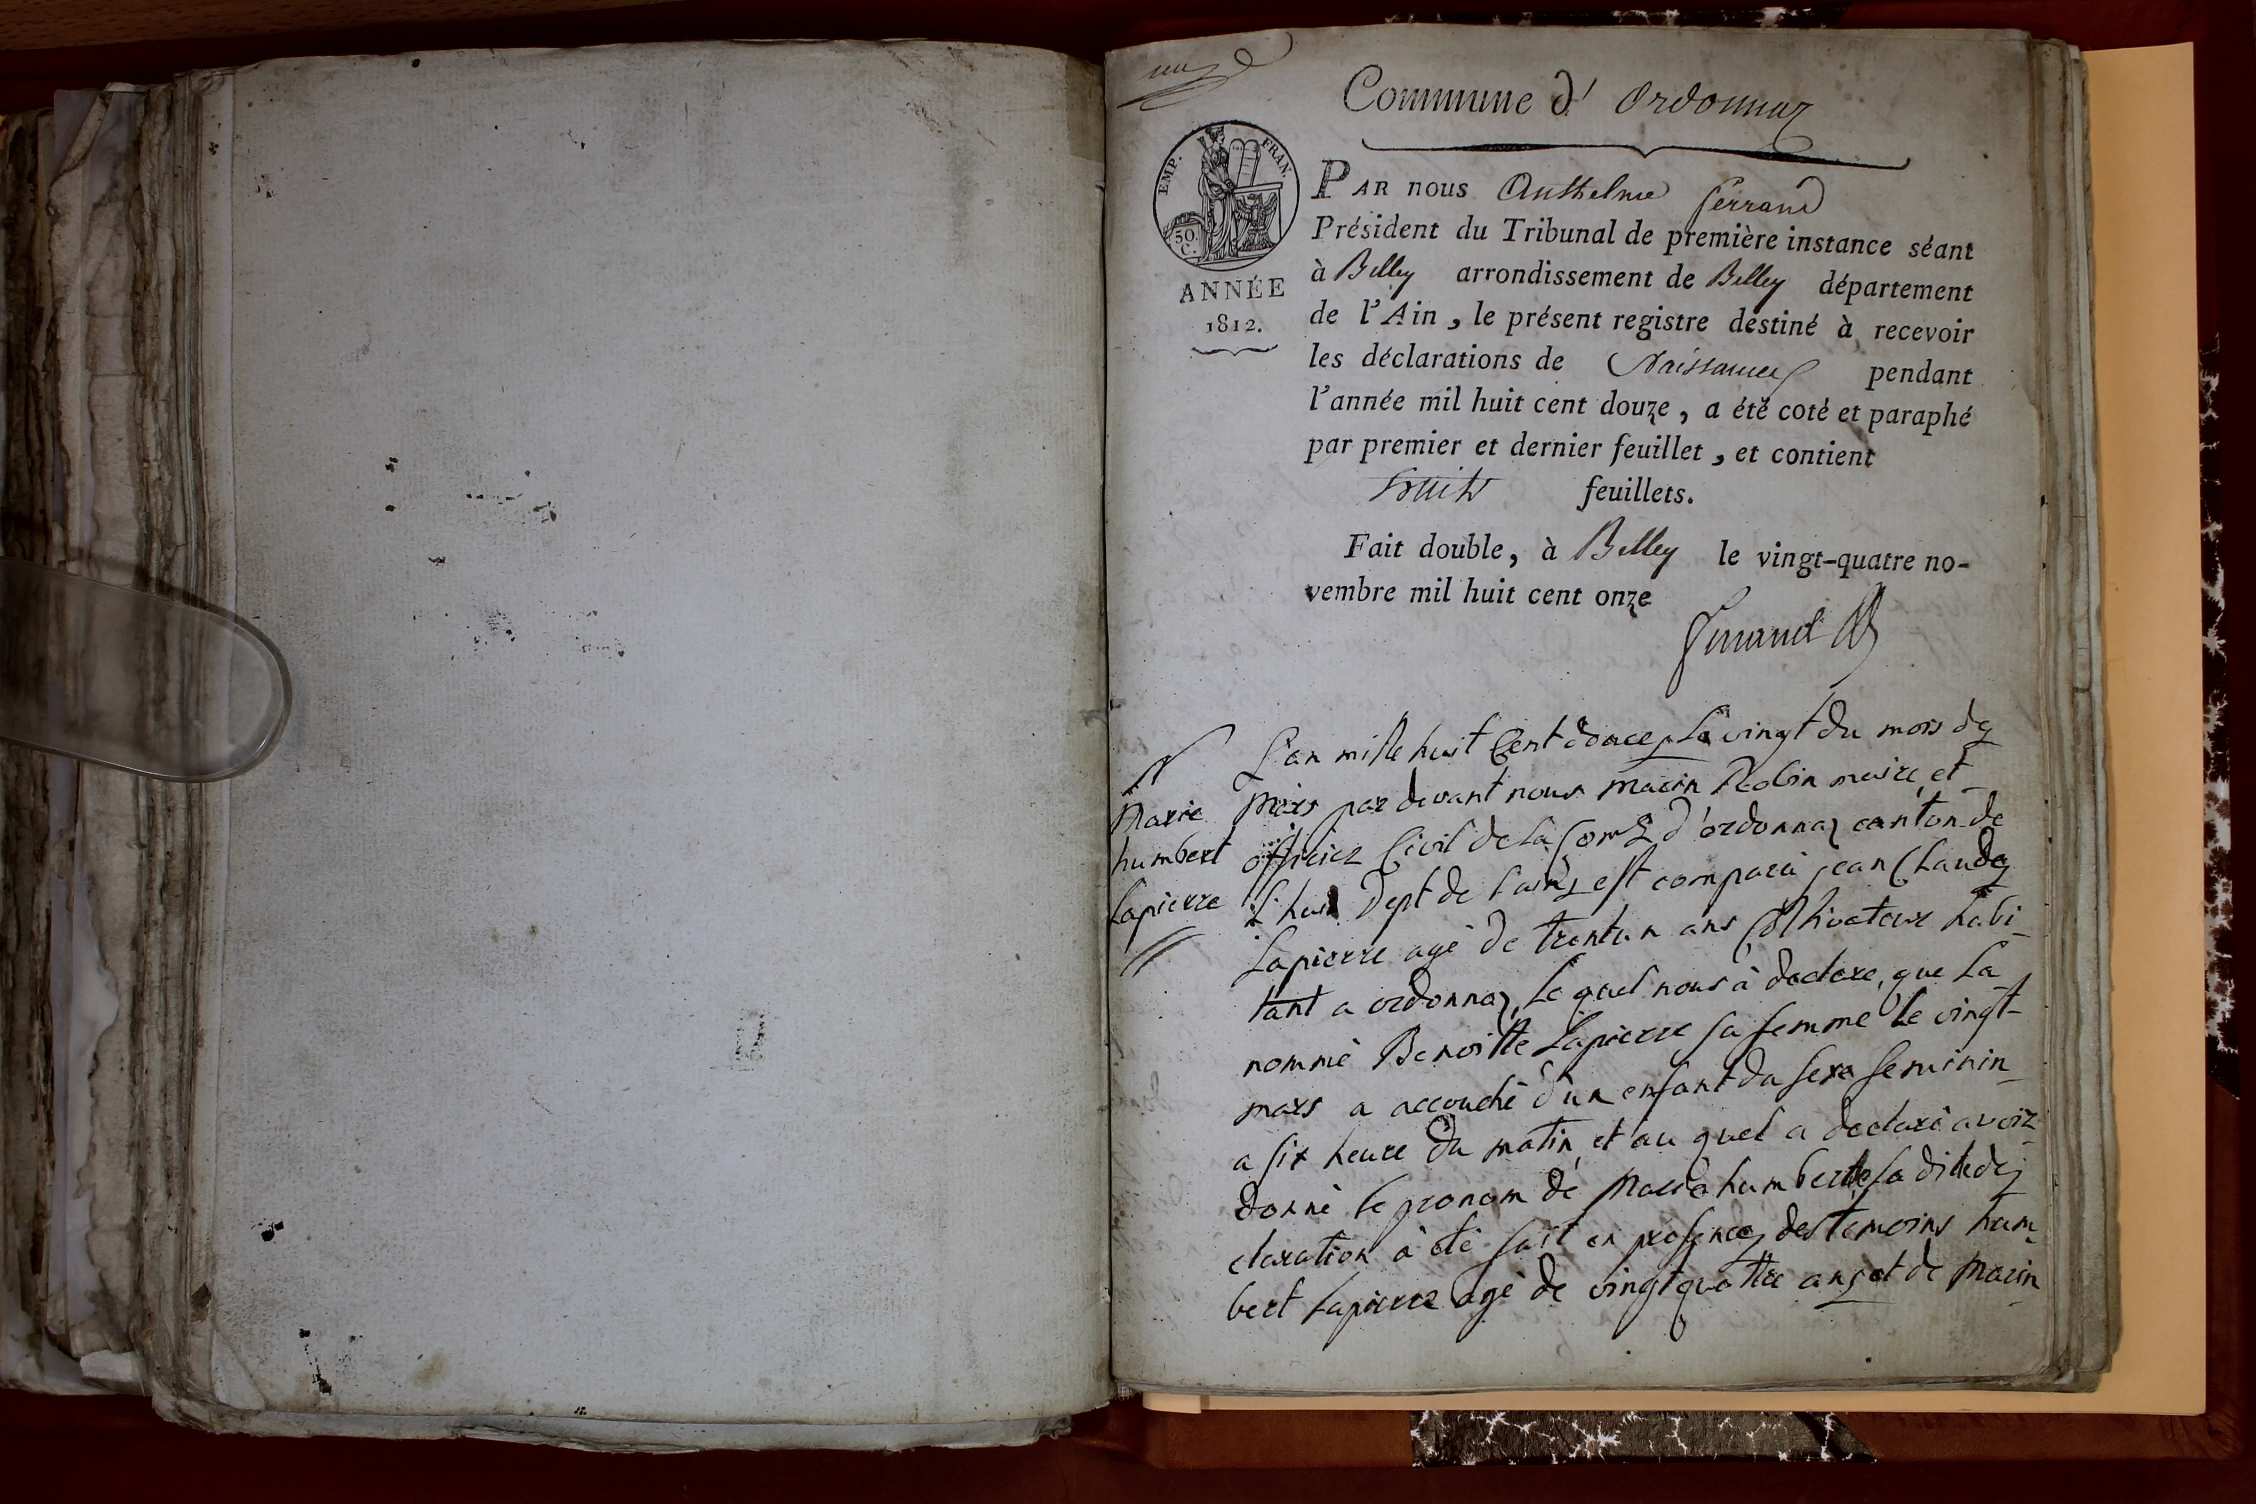 Commune d' Ordonnaz
EMP. FRAN.
50.
C.
ANNÉE
1812.
PAR nous Anthelme ferrand
Président du Tribunal de première instance séant
à Belley arrondissement de Belley département
de l'Ain, le présent registre destiné à recevoir
les déclarations de Naissances pendant
l'année mil huit cent douze, a été coté et paraphé
par premier et dernier feuillet, et contient
huit feuillets.
Fait double, à Belley le vingt-quatre no-
vembre mil huit cent onze
ferrand
Marie
humbert
Lapierre
L'an mille huit Cent douce, Le vingt du mois de
Mars par devant nous marin Robin maire, et
officier Civil de la Com d'ordonnaz canton de
L'huis Dept de L'ain, est comparu jean Claude
Lapierre agé de trentun ans Cultivateur habi-
tant a ordonnaz, Le quel nous à declare, que La
nommé Benoitte Lapierre sa femme Le vingt
mars a accouché d'un enfant du sexe feminin
a six heure du matin, et au quel a declaré avoir
donné le pronom dé Marie humberte La dite de
claration à été fait en presence des temoins hum
bert Lapierre agé de vingt quattre ans, et de Marin